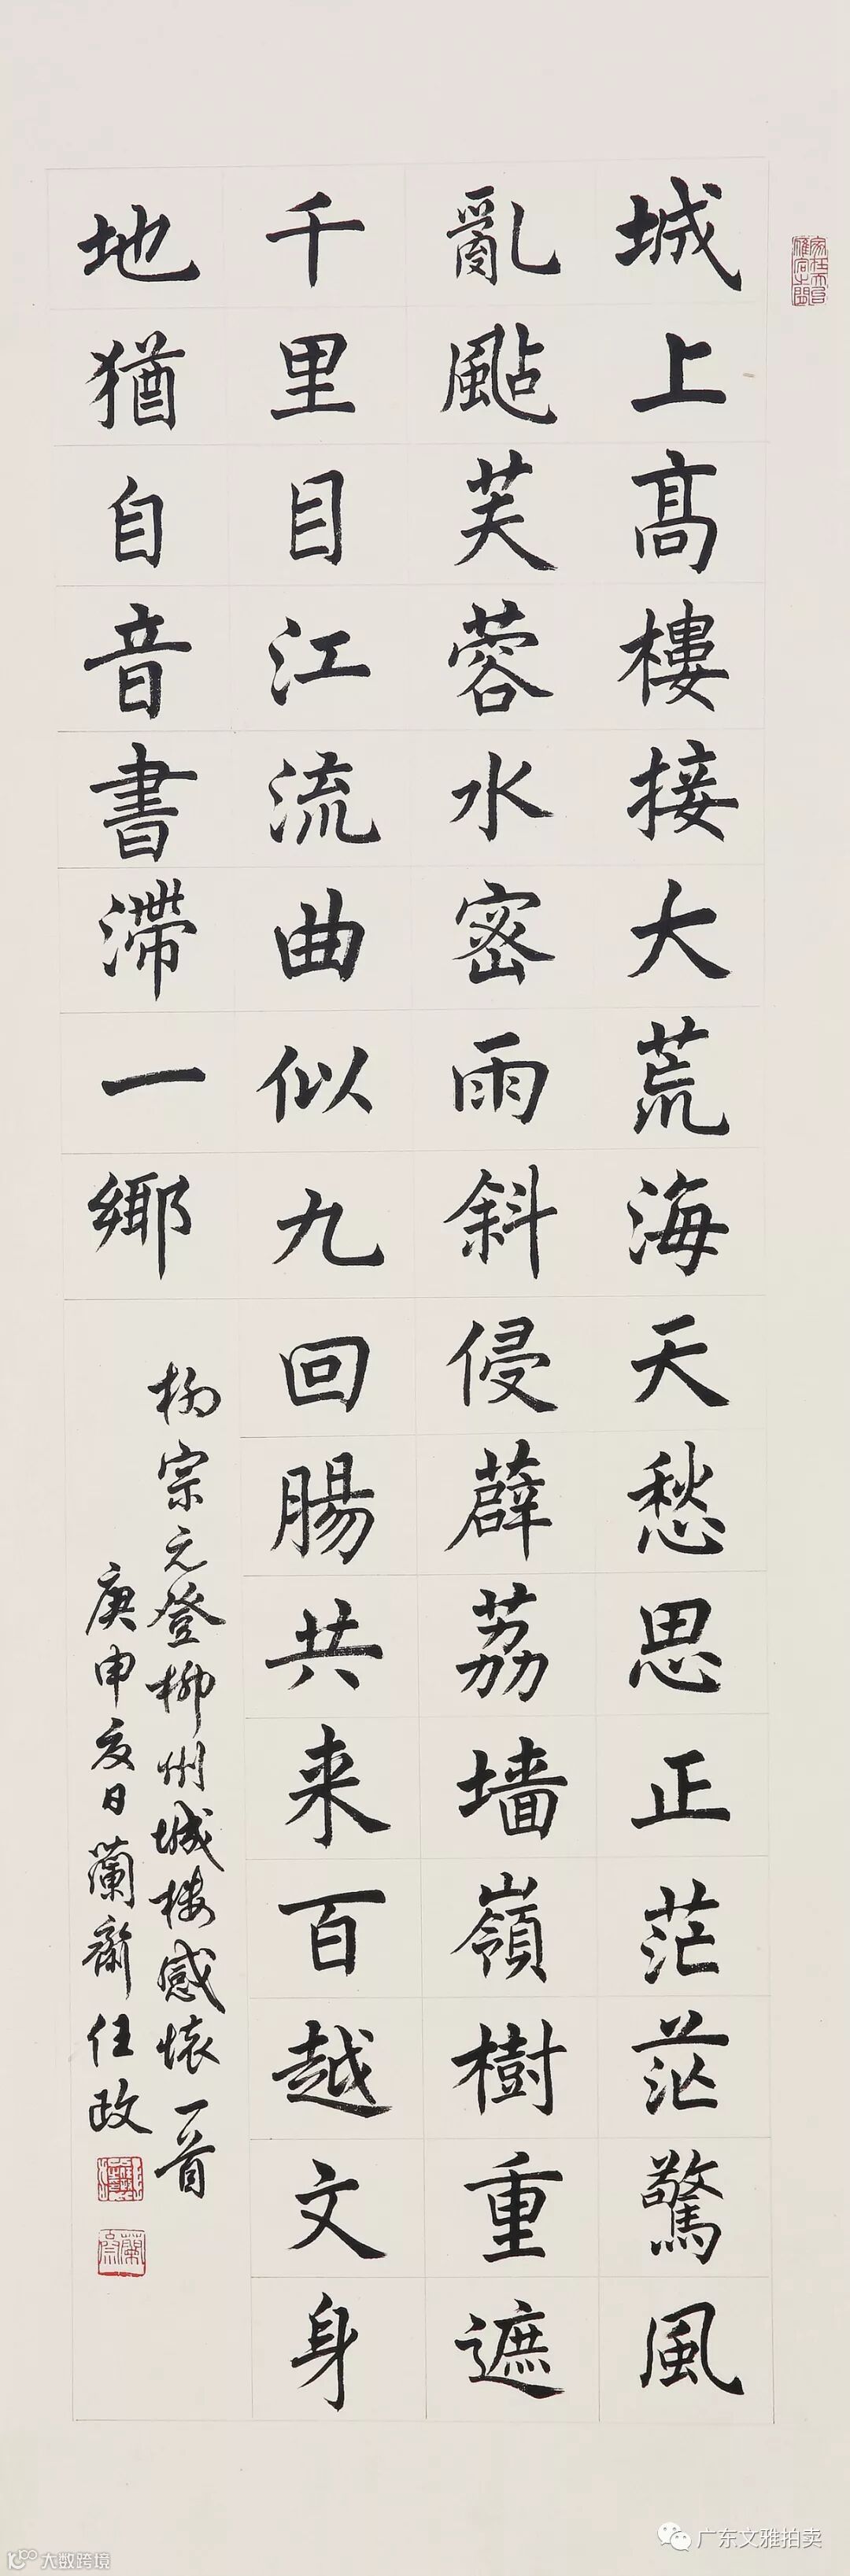 城上高樓接大荒海天愁思正茫茫驚風
亂颭芙蓉水密雨斜侵薜荔墙嶺樹重遮
千里目江流曲似九回腸共来百越文身
地猶自音書滯一鄉
柳宗元登柳州城楼感怀一首
庚申夏日蘭齋任政
广东文雅拍卖
大数跨境